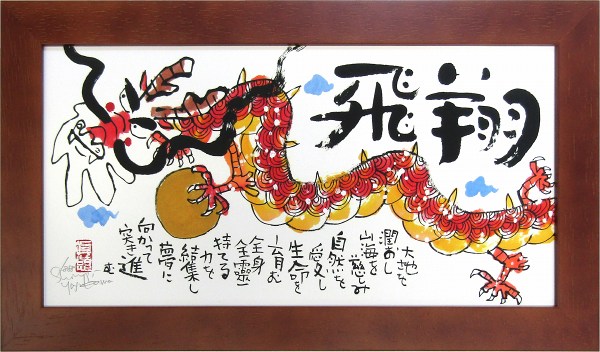 飛翔
大地を
潤おし
山海を
慈しみ
自然を
愛し
生命を
育む
全身
全霊
持てる
力を
結集し
夢に
向かって
突き進む